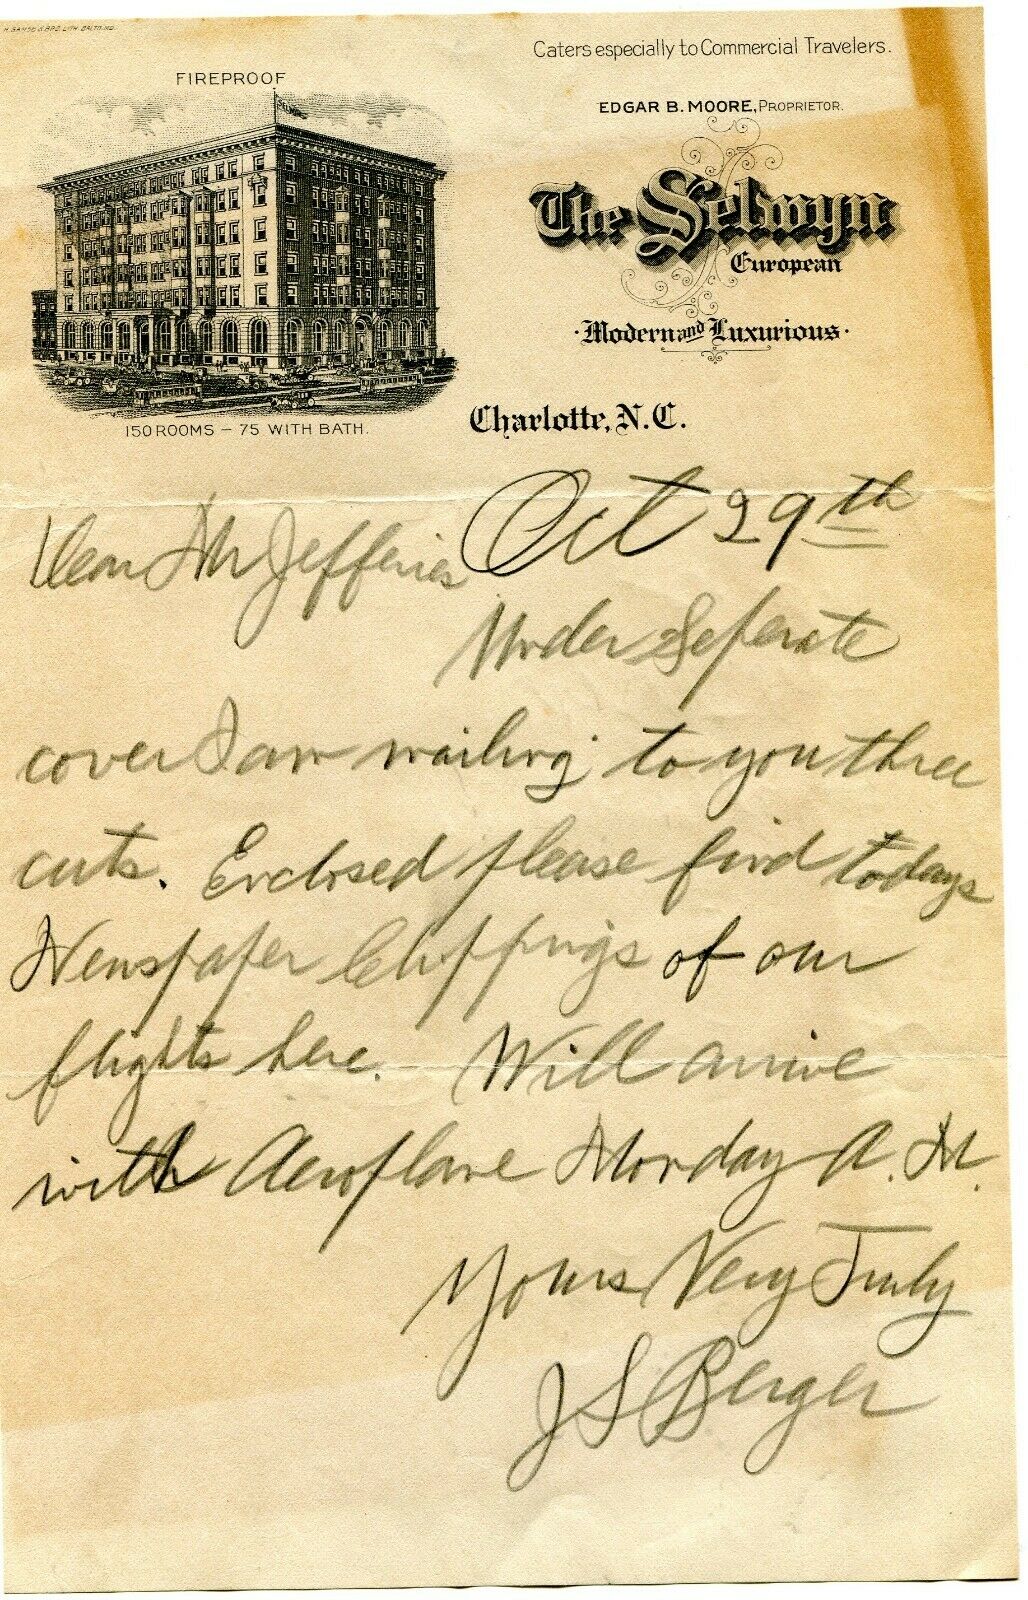 H. GAMSE & BRO. LITH. BALTO. MD.
Caters especially to Commercial Travelers.
FIREPROOF
EDGAR B. MOORE, PROPRIETOR.
SELWYN
The Selwyn
European
· Modern and Luxurious ·
150 ROOMS – 75 WITH BATH.
Charlotte, N.C.
Oct 29th
Dear Mr Jefferies
Under Seperate
cover I am mailing to you three
cuts. Enclosed please find todays
Newspaper Clippings of our
flights here. Will arrive
with Aeroplane Monday A. M.
Yours Very Truly
J S Berger